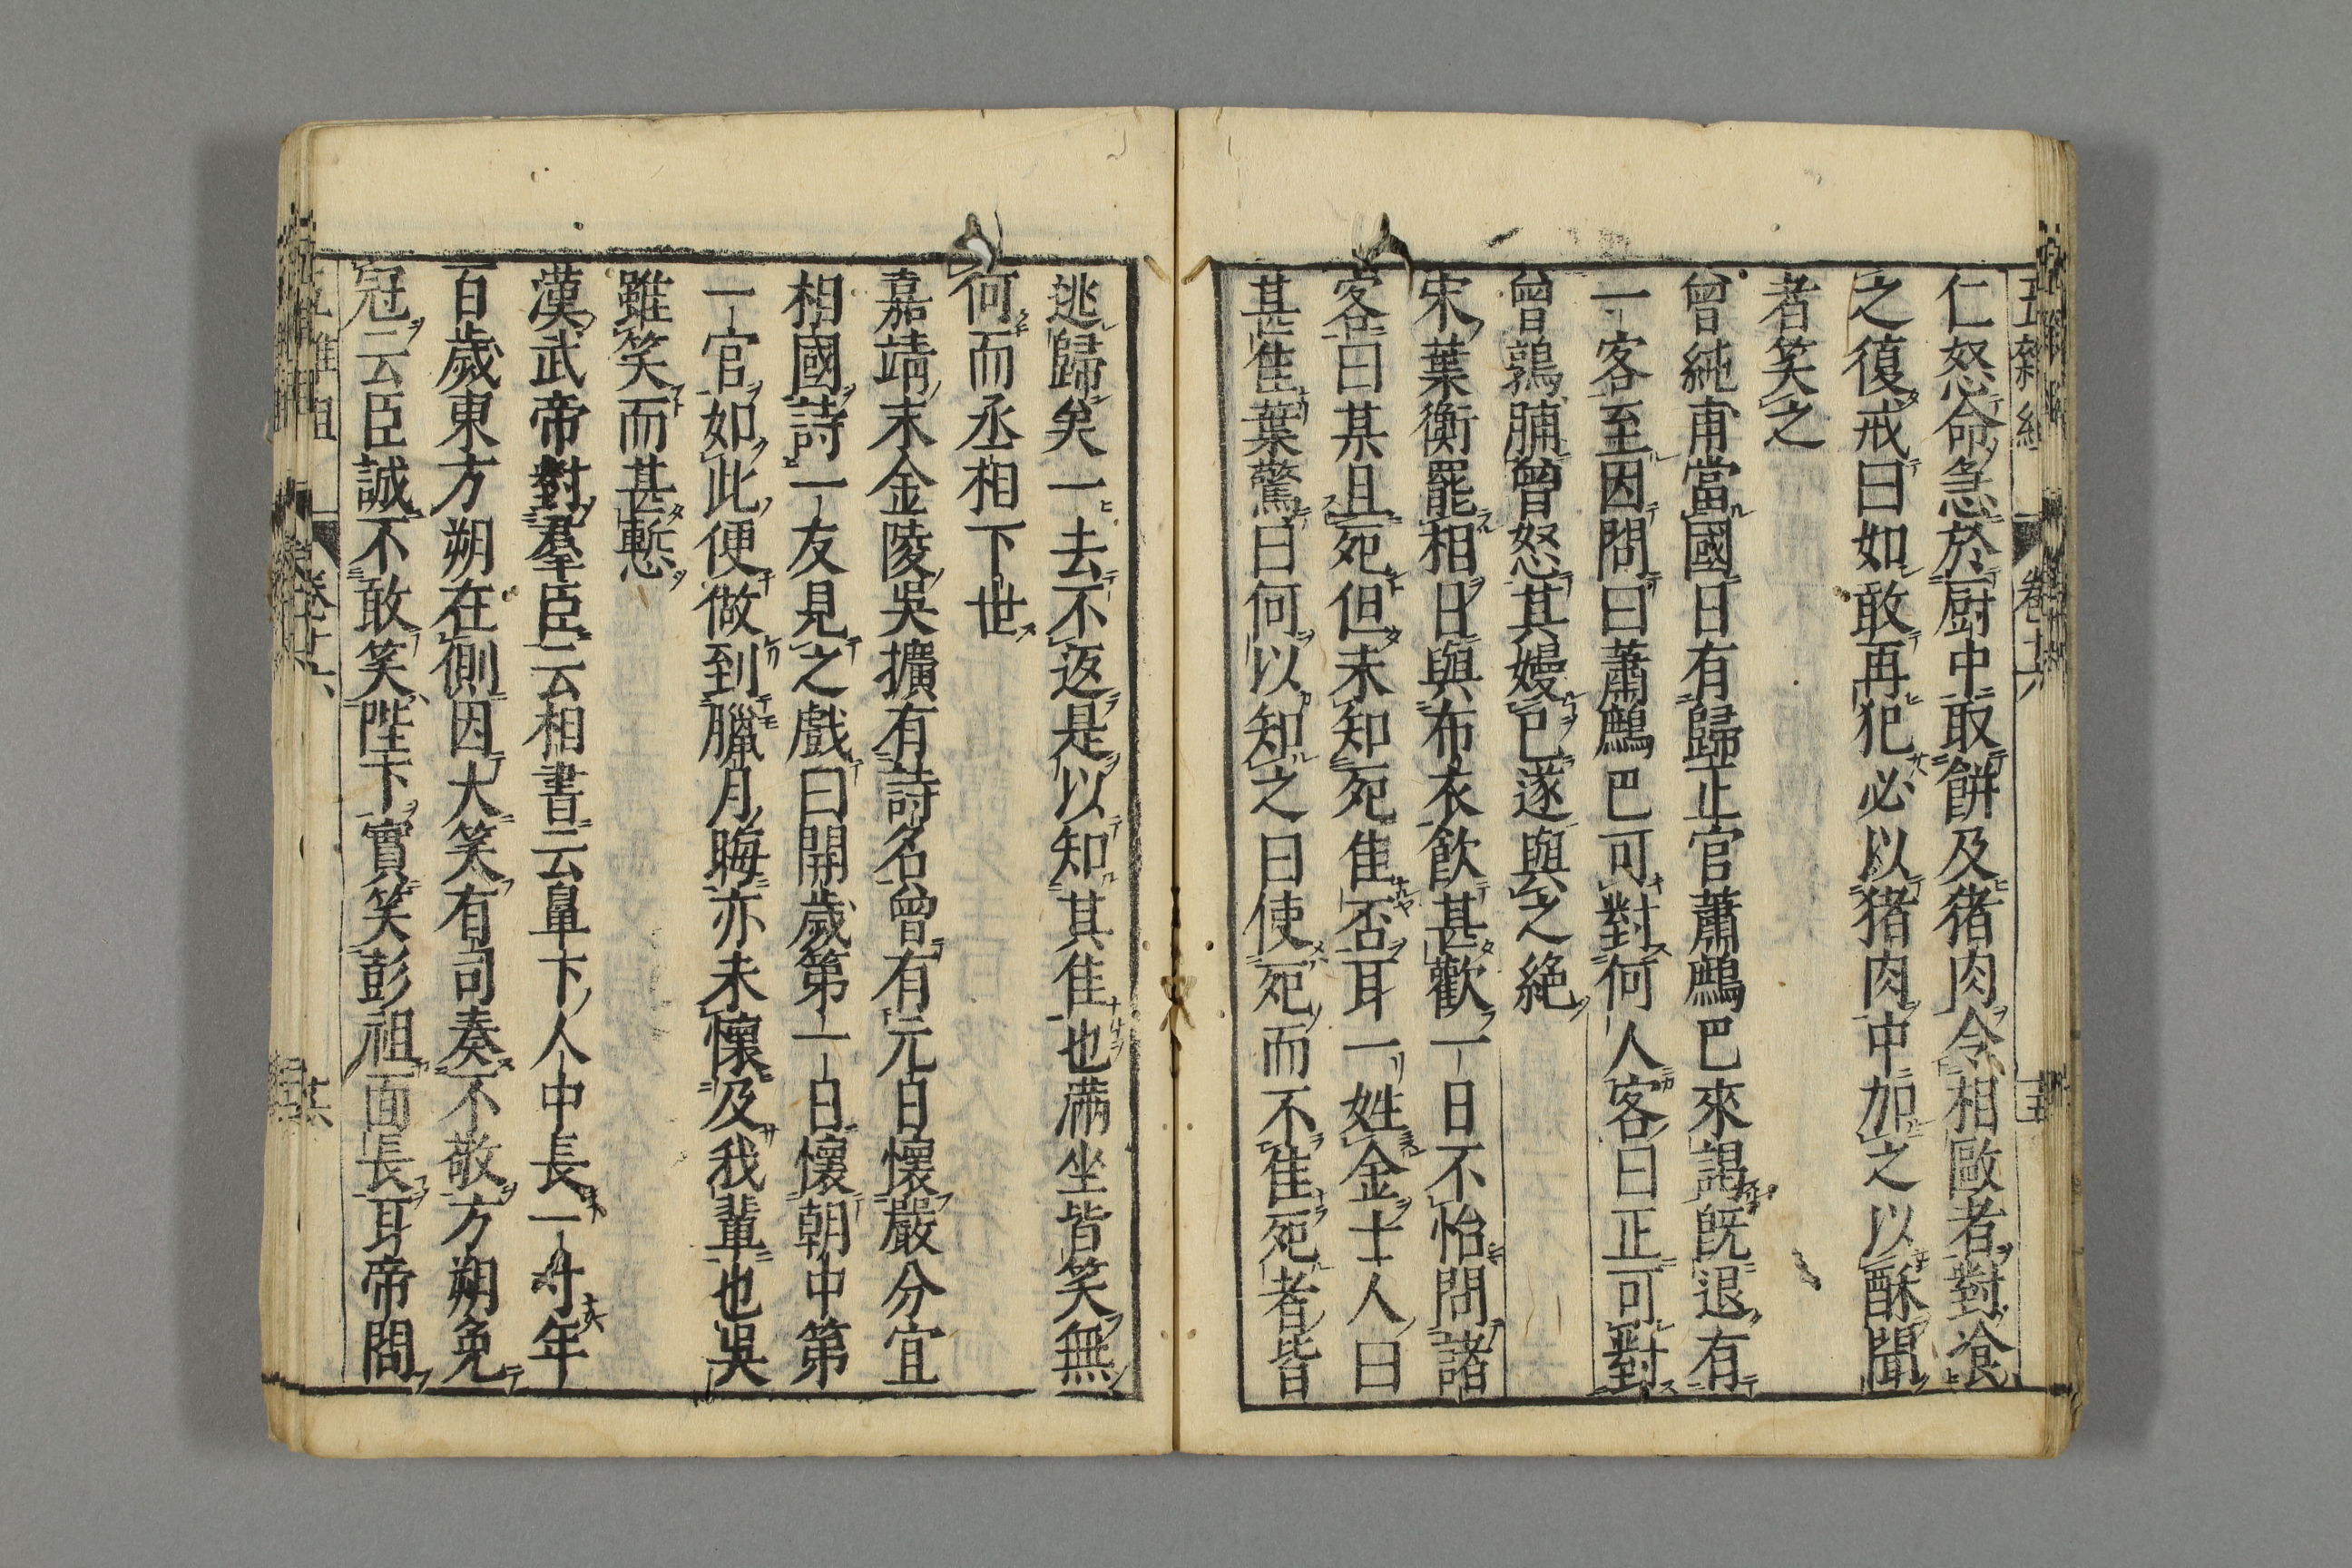 仁怒命急於厨中取餅及猪肉令相歐者對飡
之復戒曰如敢再犯必以猪肉中加之以酥聞
者笑之
曾純甫當國日有歸正官蕭鷓巴來謁既退有
一客至因問曰蕭鷓巴可對何人客曰正可對
曾鶉脯曾怒其嫚已遂與之絕
宋葉衡罷相日與布衣飲甚歡一日不怡問諸
客曰某且死但未知死隹否耳一姓金士人曰
甚隹葉驚曰何以知之曰使死而不隹死者皆
逃歸矣一去不返是以知其隹也滿坐皆笑無
何而丞相下世
嘉靖末金陵吳擴有詩名曾有元日懷嚴分宜
相國詩一友見之戲曰開歲第一日懷朝中第
一官如此便做到臘月晦亦未懷及我輩也吳
雖笑而甚慙
漢武帝對羣臣云相書云鼻下人中長一寸年
百歲東方朔在側因大笑有司奏不敬方朔免
冠云臣誠不敢笑陛下實笑彭祖面長耳帝問